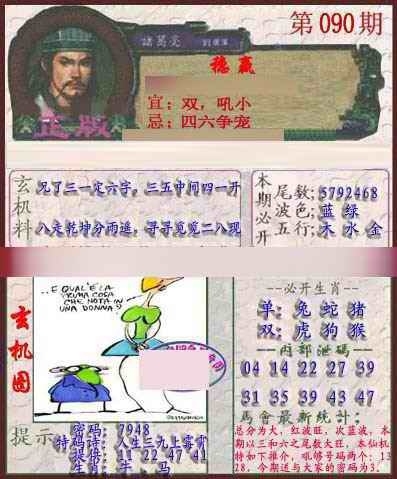 第090期
諸葛亮
稳赢
宜：双，吼小
忌：四六争宠
正版
玄机料
兄了三一定六字，三五中间四一开
八走乾坤分雨遥，寻寻觅觅二八现
本期必开
尾数；5792468
波色；蓝 绿
五行；木 水 金
玄机图
..E QUAL'È LA
PRIMA COSA
CHE NOTA IN
UNA DONNA?
--必开生肖--
单：兔 蛇 猪
双：虎 狗 猴
--内部泄码--
04 14 22 27 39
31 35 39 43 47
马会最新统计：
总分为大，红波旺，次蓝波，本
期以三和六之尾数大旺，本仙机
特如下推介，吼够号码两个：13
28，今期送与大家的密码为3．
提示
密码：7948
特码诗：人生三九上霄霄
提供：11 22 47 41
生肖：牛，马